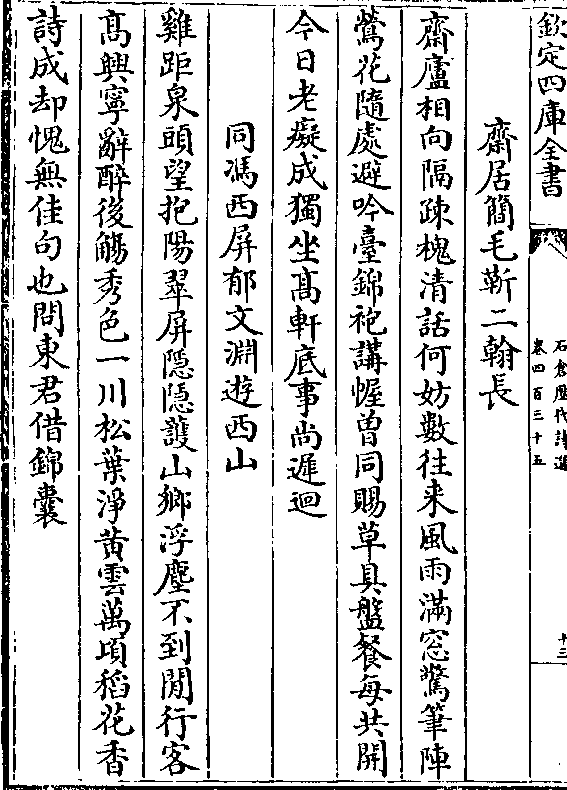 欽定四庫全書
石倉歷代詩選
卷四百三十五
十三
齋居簡毛靳二翰長
齋廬相向隔疎槐清話何妨數往来風雨滿窓驚筆陣
鶯花隨處避吟臺錦袍講幄曾同賜草具盤餐每共開
今日老癡成獨坐髙軒底事尚遲迴
同馮西屏郁文淵遊西山
雞距泉頭望抱陽翠屏隠隠護山鄉浮塵不到閒行客
髙興寧辭醉後觴秀色一川松葉淨黄雲萬頃稻花香
詩成却愧無佳句也問東君借錦囊